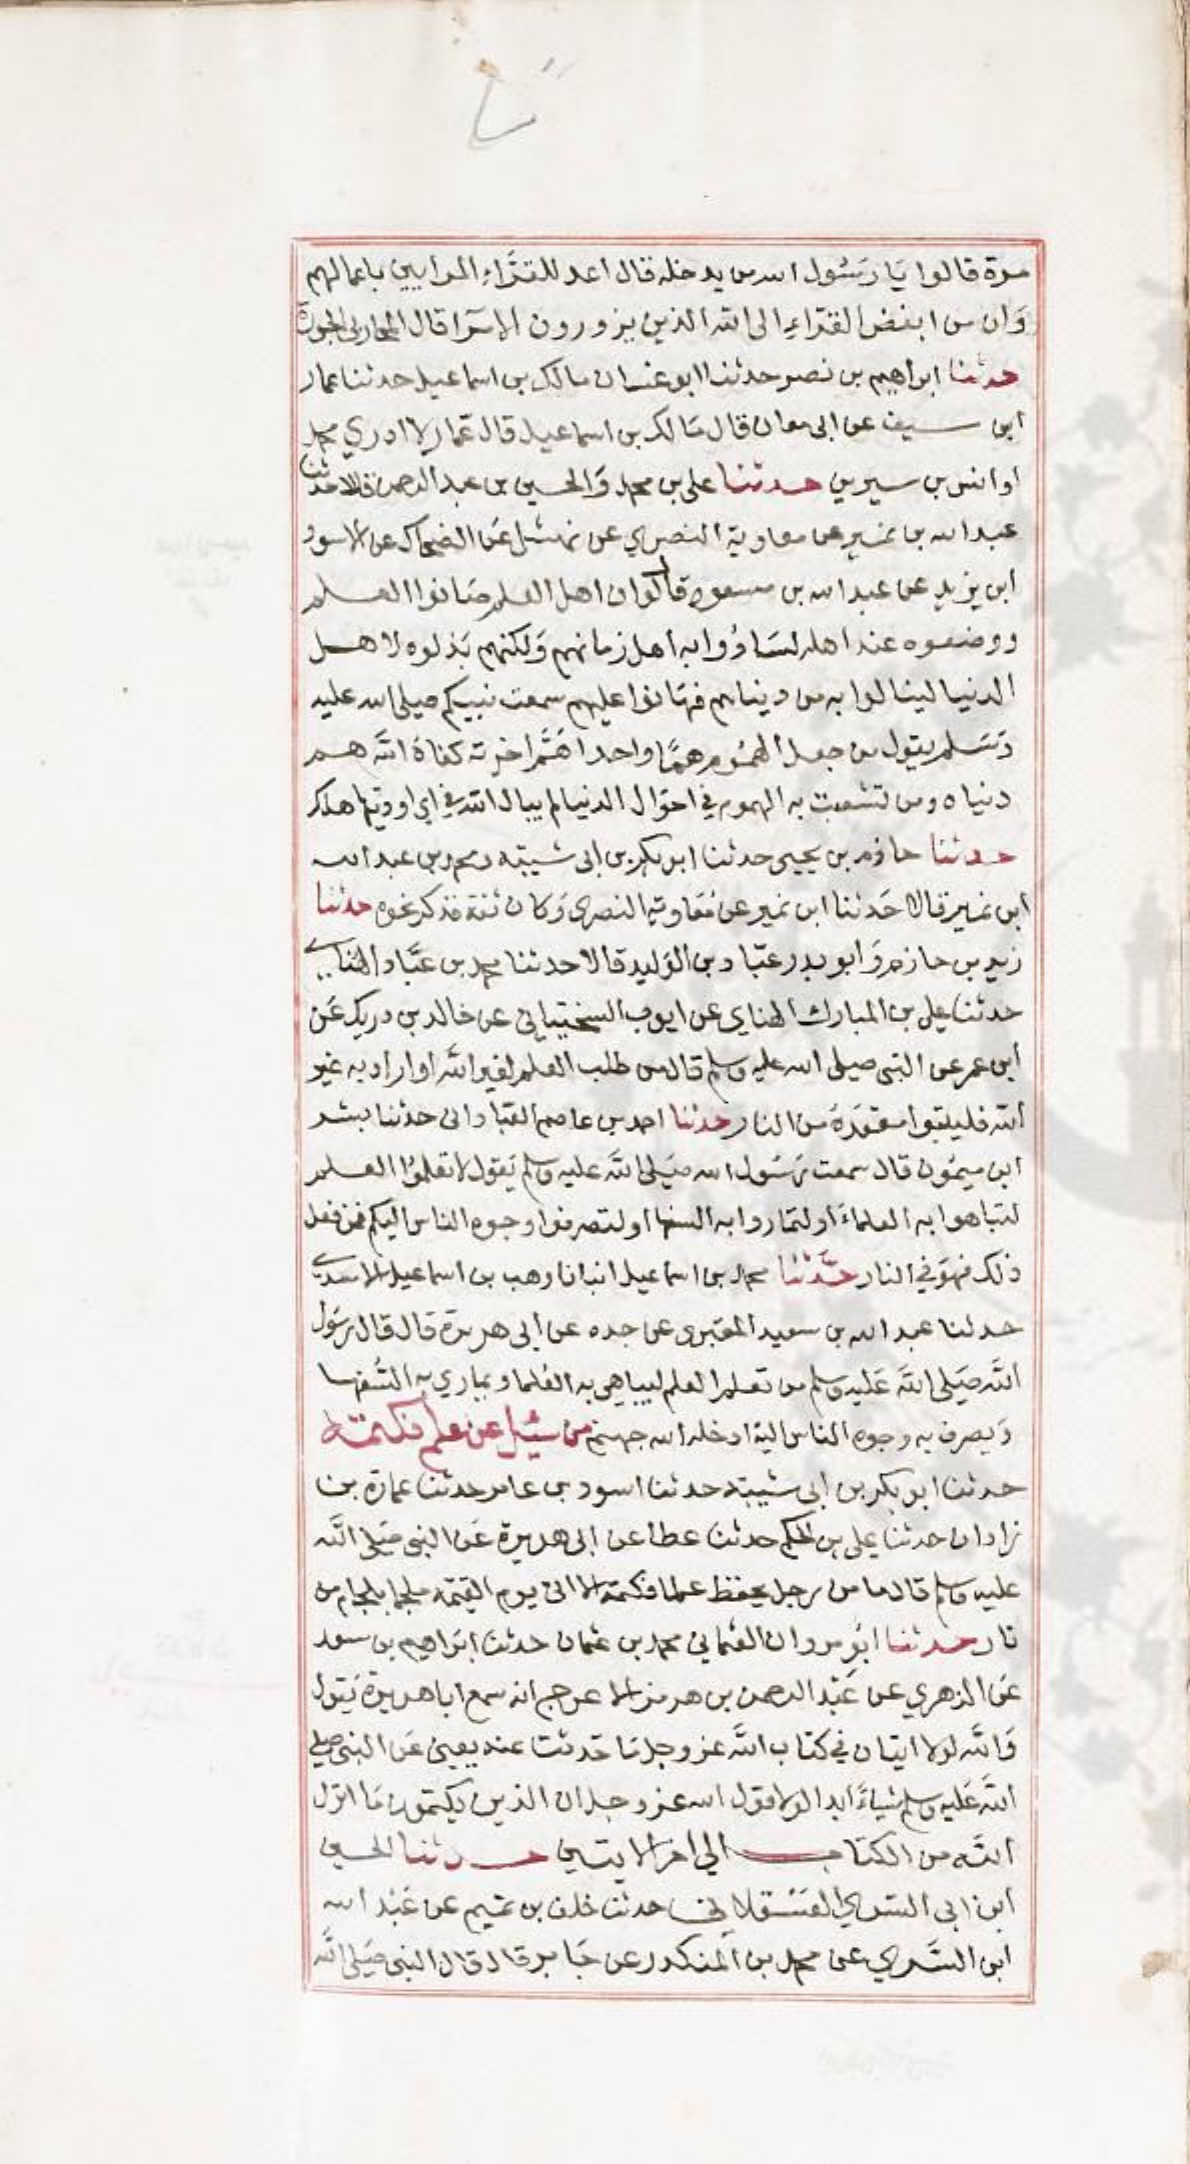 مرة قالوا يا رسول الله من يدخله قال اعد للقراء المرايين باعمالهم
وان من ابغض القراء الى الله الذين يزورون الامرا قال المحاربى الجورة
حدثنا ابراهيم بن نصر حدثنا ابو غسان مالك بن اسماعيل حدثنا عمار
ابن سيف عن ابى معان قال مالك بن اسماعيل قال عمار لا ادري محمد
او انس بن سيرين حدثنا على بن محمد والحسين بن عبد الرحمن قالا حدثنا
عبد الله بن نمير عن معاوية النصري عن نهشل عن الضحاك عن الاسود
ابن يزيد عن عبد الله بن مسعود قال لو ان اهل العلم صانوا العلم
ووضعوه عند اهله لسادوا به اهل زمانهم ولكنهم بذلوه لاهل
الدنيا لينالوا به من دنياهم فهانوا عليهم سمعت نبيكم صلى الله عليه
وسلم يقول من جعل الهموم هما واحدا هم اخرته كفاه الله هم
دنياه ومن تشعبت به الهموم في احوال الدنيا لم يبال الله في اي اوديتها هلك
حدثنا حازم بن يحيى حدثنا ابو بكر بن ابى شيبة ومحمد بن عبد الله
ابن نمير قالا حدثنا ابن نمير عن معاوية النصرى وكان ثقة فذكر نحوه حدثنا
زيد بن حازم وابو بدر عباد بن الوليد قالا حدثنا محمد بن عباد الهناى
حدثنا على بن المبارك الهناي عن ايوب السختياني عن خالد بن دريك عن
ابن عمر عن النبى صلى الله عليه وسلم قال من طلب العلم لغير الله او اراد به غير
الله فليتبوا مقعده من النار حدثنا احمد بن عاصم العبادانى حدثنا بشر
ابن ميمون قال سمعت رسول الله صلى الله عليه وسلم يقول لا تعلموا العلم
لتباهوا به العلماء او لتماروا به السفها او لتصرفوا وجوه الناس اليكم فمن فعل
ذلك فهو في النار حدثنا محمد بن اسماعيل انبانا وهب بن اسماعيل الاسدى
حدثنا عبد الله بن سعيد المقبرى عن جده عن ابى هريرة قال قال رسول
الله صلى الله عليه وسلم من تعلم العلم ليباهي به العلما ويماري به السفها
ويصرف به وجوه الناس اليه ادخله الله جهنم من سئل عن علم فكتمه
حدثنا ابو بكر بن ابى شيبة حدثنا اسود بن عامر حدثنا عمارة بن
زادان حدثنا علي بن الحكم حدثنا عطا عن ابى هريرة عن النبى صلى الله
عليه وسلم قال ما من رجل يحفظ علما فكتمه الا اتى يوم القيمة ملجما بلجام من
نار حدثنا ابو مروان العثماني محمد بن عثمان حدثنا ابراهيم بن سعد
عن الزهري عن عبد الرحمن بن هرمز الاعرج انه سمع ابا هريرة يقول
والله لولا ايتان في كتاب الله عز وجل ما حدثت عنه يعنى عن النبى صلى
الله عليه وسلم شياء ابدا لولا قول الله عز وجل ان الذين يكتمون ما انزل
الله من الكتاب الى اخر الايتين حدثنا الحسين
ابن ابى السري العسقلانى حدثنا خلف بن تميم عن عبد الله
ابن السري عن محمد بن المنكدر عن جابر قال قال النبى صلى الله